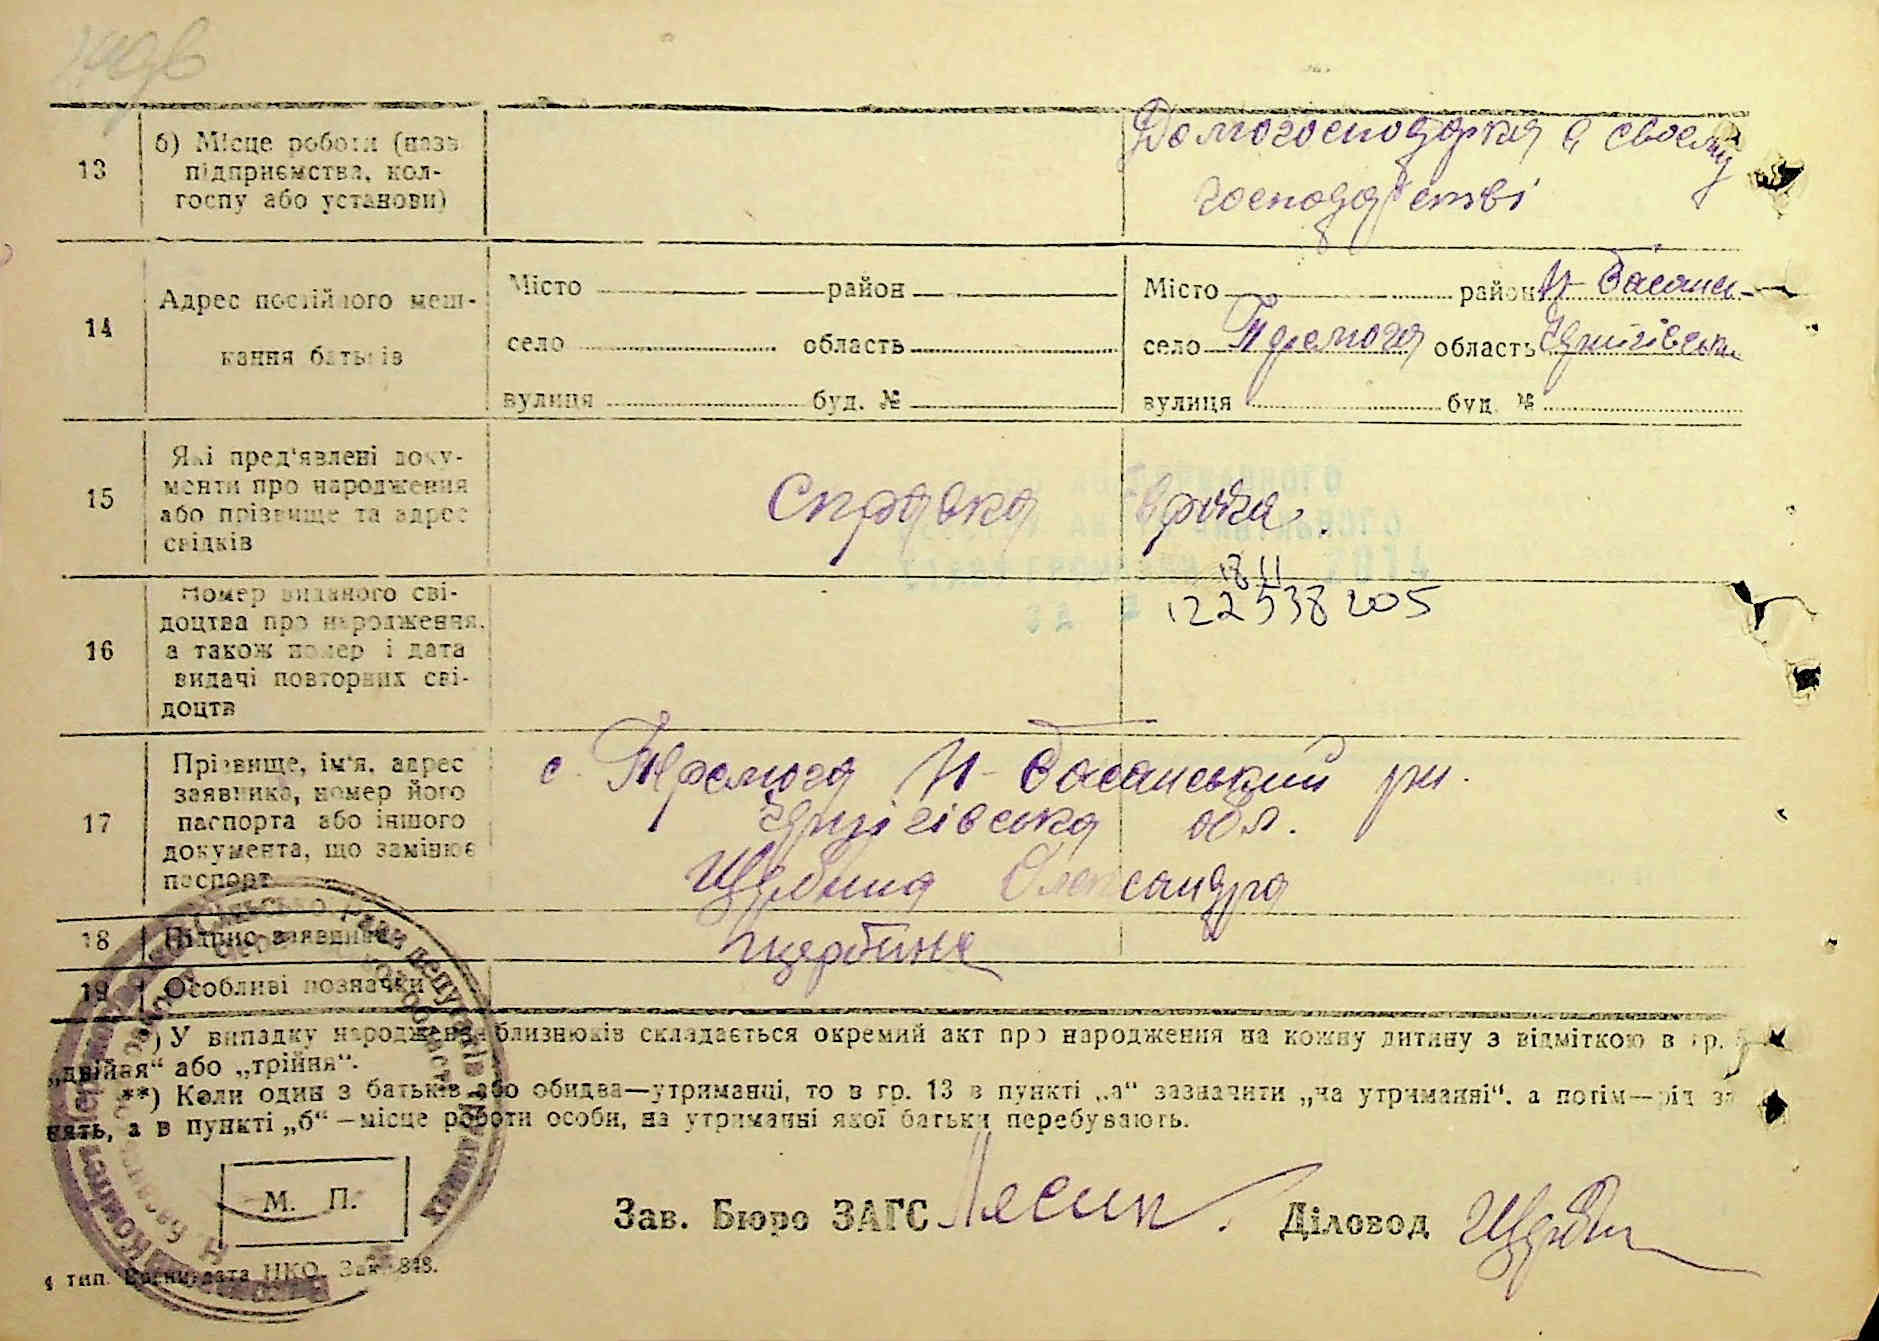 13
б) Місце роботи (назв
підприємства, кол-
госпу або установи)
Домогосподарка в своєму
господарстві
14
Адрес постійного меш-
кання батьків
Місто район
село область
вулиця буд. №
Місто район Н-Басансь-
село Перемога область Чернігівськ
вулиця буд. №
15
Які пред'явлені доку-
менти про народження
або прізвище та адрес
свідків
Справка врача.
16
Номер виданого сві-
доцтва про народження,
а також номер і дата
видачі повторних сві-
доцтв
18 11
122538205
17
Прізвище, ім'я, адрес
заявника, номер його
паспорта або іншого
документа, що замінює
паспорт
с. Перемога Н-Басанський рн.
Чернігівська обл.
Щербина Олександра
18
Підпис заявника
Щербина
19
Особливі позначки
*) У випадку народження близнюків складається окремий акт про народження на кожну дитину з відміткою в гр. 5
„двійня“ або „трійня“.
**) Коли один з батьків або обидва—утриманці, то в гр. 13 в пункті „а“ зазначити „на утриманні“, а потім—рід за
нять, а в пункті „б“ —місце роботи особи, на утриманні якої батьки перебувають.
М. П.
Зав. Бюро ЗАГС Лесик. Діловод Щерби
4 тип. Воениздата НКО. Зак. 848.